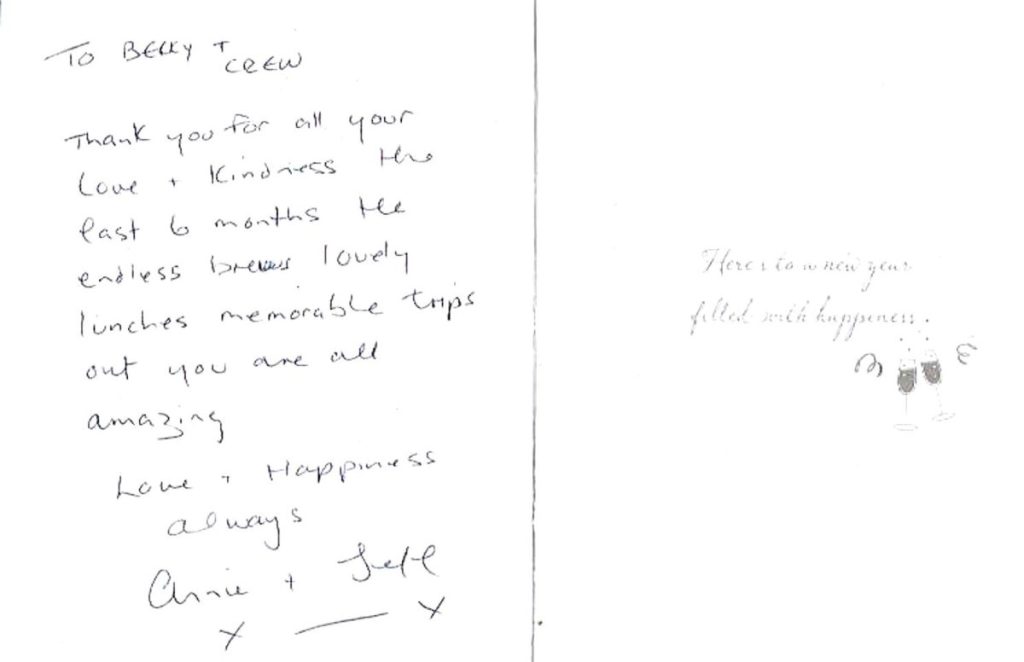 TO BECKY +
CREW
Thank you for all your
Love + Kindness the
last 6 months the
endless brews lovely
lunches memorable trips
out you are all
amazing
Love + Happiness
always
Annie + Jeff
X X
Here's to a new year
filled with happiness.